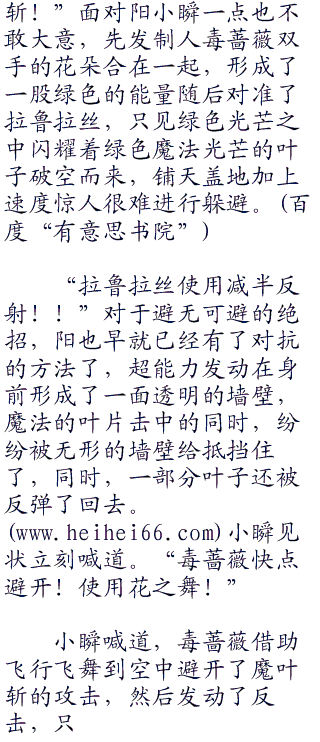 斩！”面对阳小瞬一点也不
敢大意，先发制人毒蔷薇双
手的花朵合在一起，形成了
一股绿色的能量随后对准了
拉鲁拉丝，只见绿色光芒之
中闪耀着绿色魔法光芒的叶
子破空而来，铺天盖地加上
速度惊人很难进行躲避。(百
度“有意思书院”)
“拉鲁拉丝使用减半反
射！！”对于避无可避的绝
招，阳也早就已经有了对抗
的方法了，超能力发动在身
前形成了一面透明的墙壁，
魔法的叶片击中的同时，纷
纷被无形的墙壁给抵挡住
了，同时，一部分叶子还被
反弹了回去。
(www.heihei66.com)小瞬见
状立刻喊道。“毒蔷薇快点
避开！使用花之舞！”
小瞬喊道，毒蔷薇借助
飞行飞舞到空中避开了魔叶
斩的攻击，然后发动了反
击，只